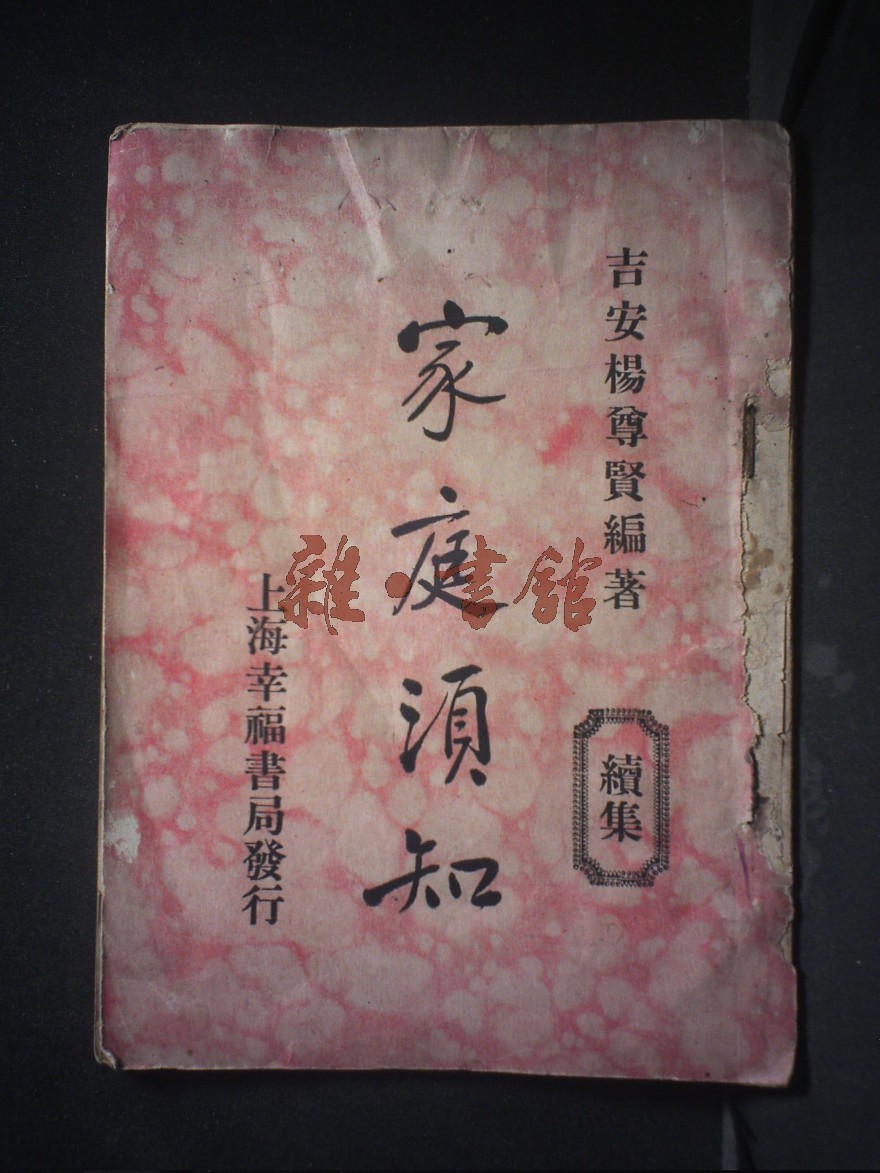 吉安楊尊賢編著
續集
家庭須知
上海幸福書局發行
雜·書館